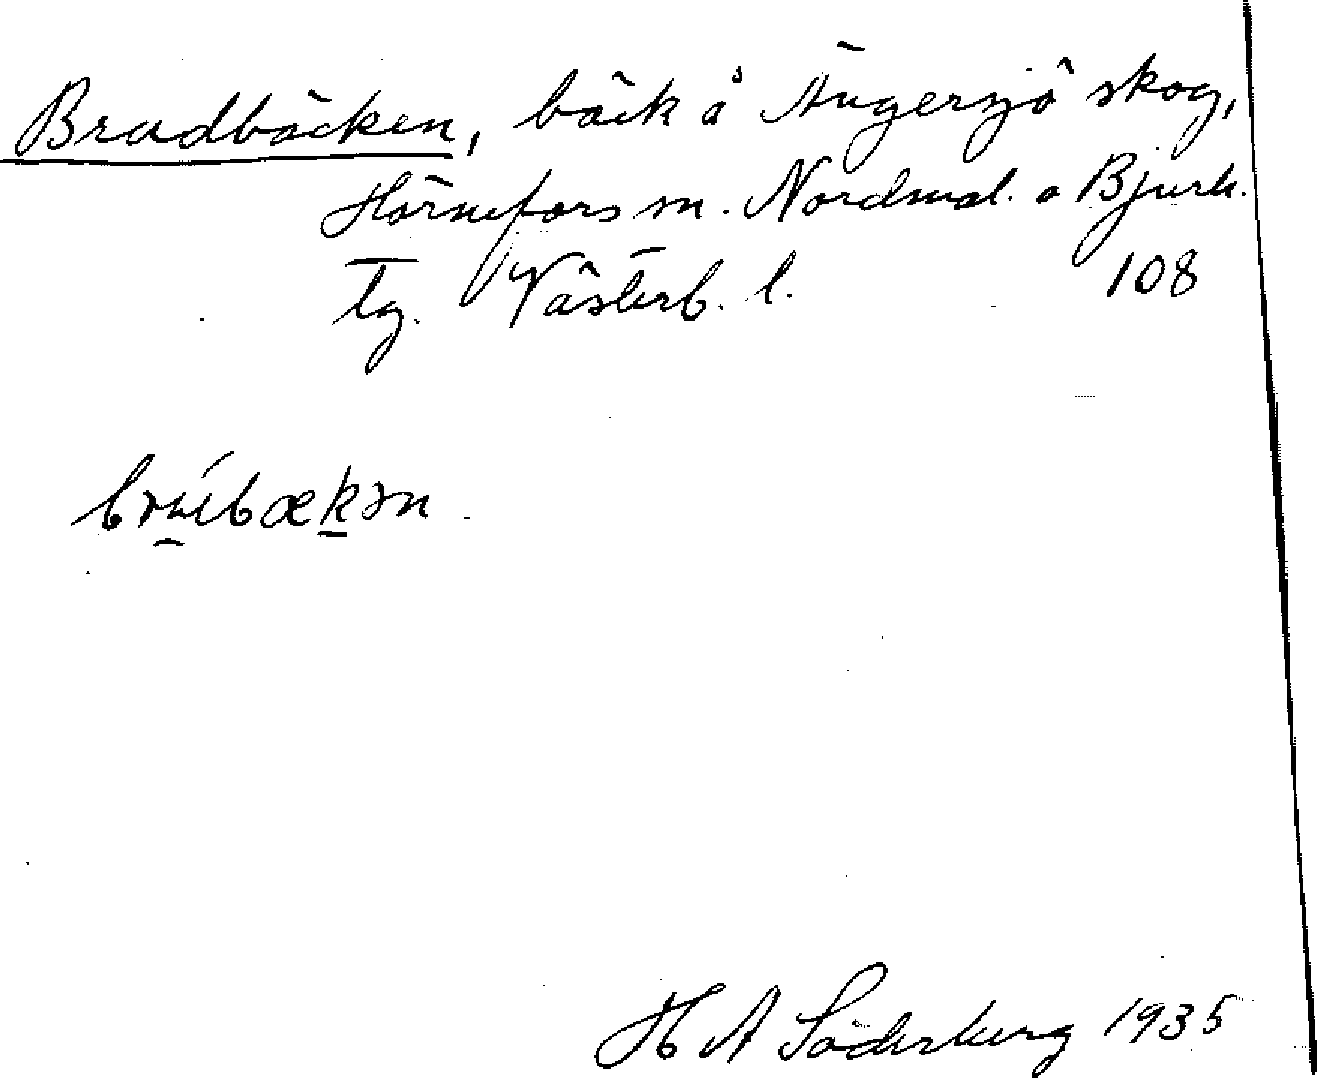 Brudbäcken, bäck å Ängersjö skog,
Hörnefors sn. Nordmal. o Bjurh.
tg. Västerb. l. 108
brúbækən
H A Söderberg 1935